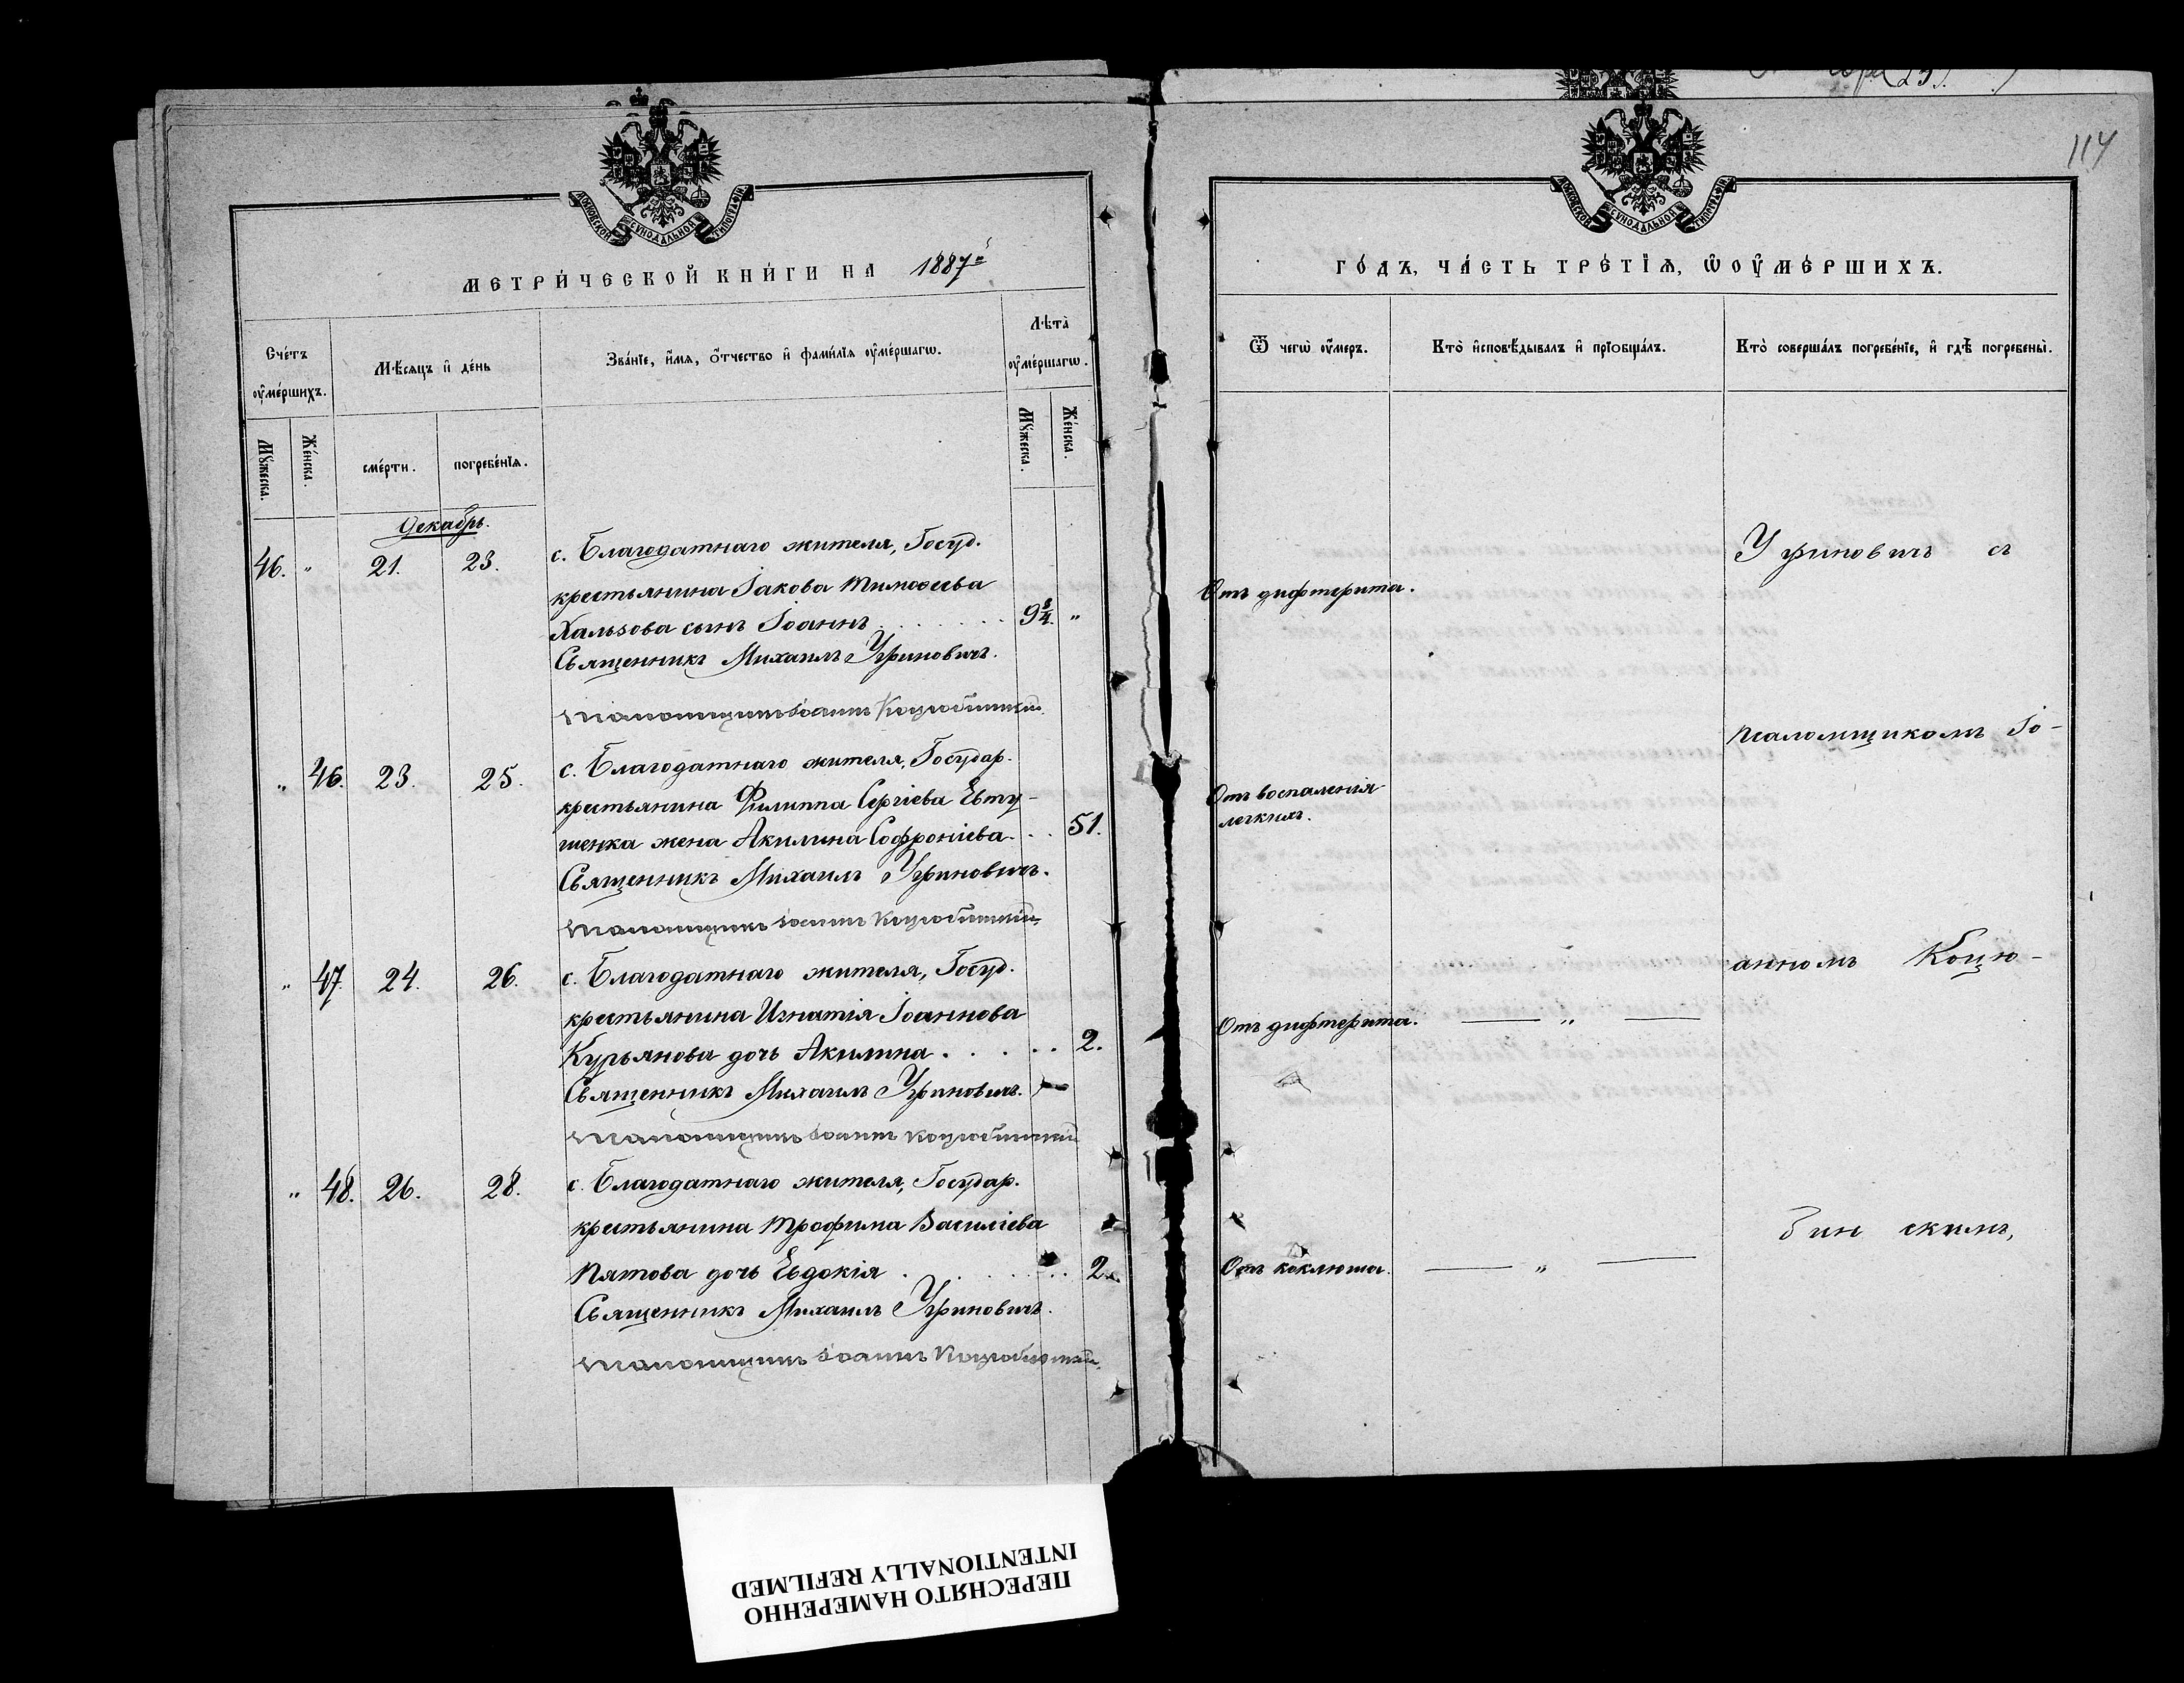 114
МОСКОВСКОЙ СУНОДАЛЬНОЙ ТИПОГРАФІИ
МЕТРИ́ЧЕСКОЙ КНИ́ГИ НА 1887й
Сче́тъ ᲂу҆ме́ршихъ.
Мѣ́сяцъ и҆ де́нь
Зва́нїе, и҆́мя, ѻ҆́тчество и҆ фами́лїя ᲂу҆ме́ршагѡ.
Лѣ́та ᲂу҆ме́ршагѡ.
Мꙋ́жеска.
Же́нска.
сме́рти.
погребе́нїѧ.
Мꙋ́жеска.
Же́нска.
Декабрь.
46. " 21. 23. с. Благодатнаго жителя, Госуд.
крестьянина Іакова Тимоѳеева
Хальзова сынъ Іоаннъ . . . . . . 9¾. "
Священникъ Михаилъ Угриновичъ.
Псаломщикъ Іоаннъ Коцюбинскій.
" 46. 23. 25. с. Благодатнаго жителя, Государ.
крестьянина Филиппа Сергіева Евту-
шенка жена Акилина Софроніева . . 51.
Священникъ Михаилъ Угриновичъ.
Псаломщикъ Іоаннъ Коцюбинскій.
" 47. 24. 26. с. Благодатнаго жителя, Госуд.
крестьянина Игнатія Іоаннова
Курьянова дочь Акилина . . . . . 2.
Священникъ Михаилъ Угриновичъ.
Псаломщикъ Іоаннъ Коцюбинскій
" 48. 26. 28. с. Благодатнаго жителя, Государ.
крестьянина Трофима Василіева
Пятова дочь Евдокія . . . . . . 2.
Священникъ Михаилъ Угриновичъ.
Псаломщикъ Іоаннъ Коцюбинскій.
МОСКОВСКОЙ СУНОДАЛЬНОЙ ТИПОГРАФІИ
ГО́ДЪ, ЧА́СТЬ ТРЕ́ТЇѦ, Ѡ҆ ОУ҆МЕ́РШИХЪ.
Ѿ чегѡ̀ ᲂу҆́меръ.
Кто̀ и҆сповѣ́дывалъ и҆ прїобща́лъ.
Кто̀ соверша́лъ погребе́нїе, и҆ гдѣ̀ погребены̀.
Угриновичъ съ
Отъ дифтерита.
псаломщикомъ Іо-
Отъ воспаленія
легкихъ.
анномъ Коцю-
Отъ дифтерита. — " —
бинскимъ,
Отъ коклюша. — " —
ПЕРЕСНЯТО НАМЕРЕННО
INTENTIONALLY REFILMED